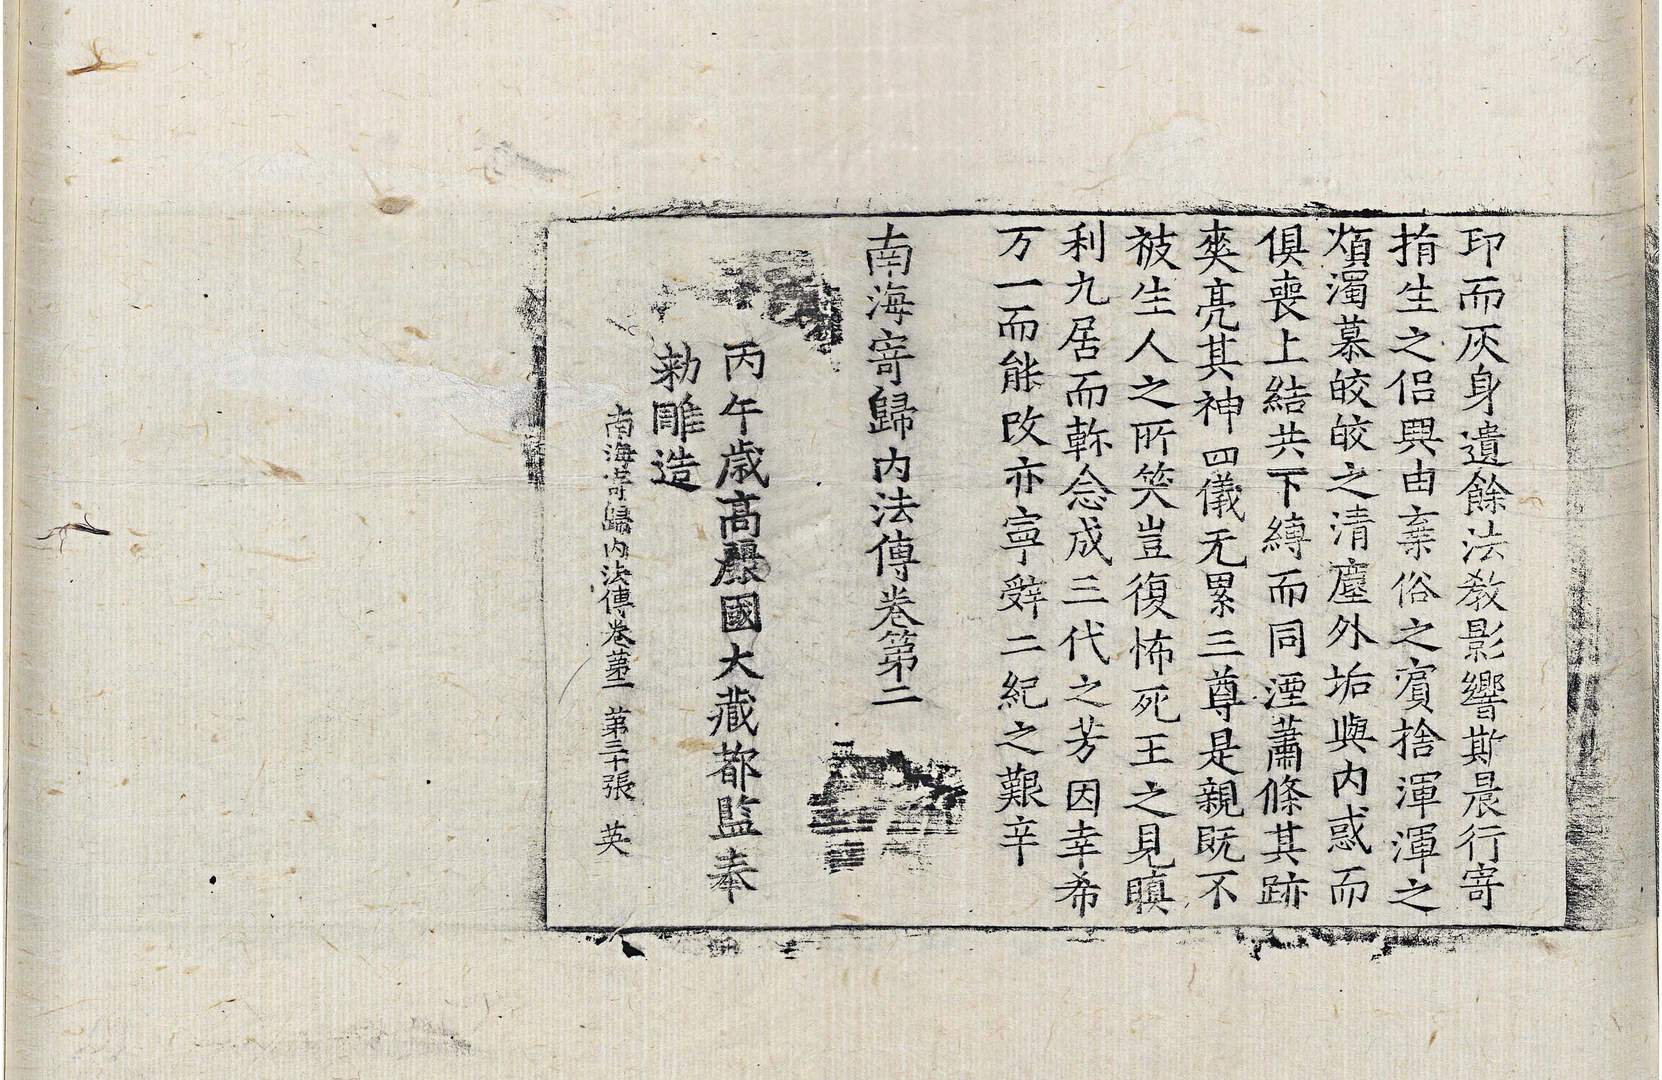 印而灰身遺餘法教影響斯晨行寄
揟生之侶興由棄俗之賔捨渾渾之
煩濁慕皎皎之清塵外垢與內惑而
俱喪上結共下縛而同湮蕭條其跡
爽亮其神四儀无累三尊是親既不
被生人之所笑豈復怖死王之見瞋
利九居而軫念成三代之芳因幸希
万一而能改亦寧辤二紀之艱辛
南海寄歸内法傳卷第二
丙午歳高麗國大藏都監奉
勑雕造
南海寄歸内法傳卷第二 第三十張 英